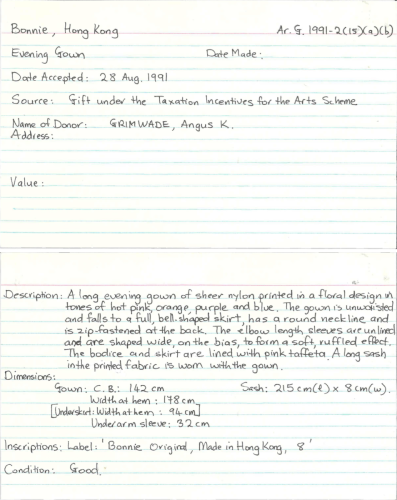 Bonnie, Hong Kong Ar. G. 1991-2(15)(a)(b)
Evening Gown Date Made:
Date Accepted: 28 Aug. 1991
Source: Gift under the Taxation Incentives for the Arts Scheme
Name of Donor: GRIMWADE, Angus K.
Address:
Value:
Description: A long evening gown of sheer nylon printed in a floral design in
tones of hot pink, orange, purple and blue. The gown is unwaisted
and falls to a full, bell-shaped skirt, has a round neckline and
is zip-fastened at the back. The elbow length sleeves are unlined
and are shaped wide, on the bias, to form a soft, ruffled effect.
The bodice and skirt are lined with pink taffeta. A long sash
in the printed fabric is worn with the gown.
Dimensions:
Gown: C.B.: 142 cm Sash: 215 cm(l) x 8 cm(w).
Width at hem: 178 cm
[Underskirt: Width at hem: 94 cm]
Underarm sleeve: 32 cm
Inscriptions: Label: 'Bonnie Original, Made in Hong Kong, 8'
Condition: Good.